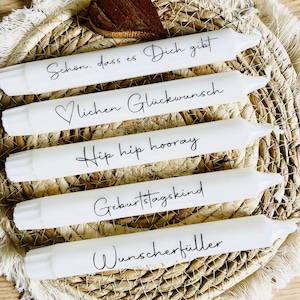 Schön, dass es Dich gibt
♡lichen Glückwunsch
Hip hip hooray
Geburtstagskind
Wunscherfüller